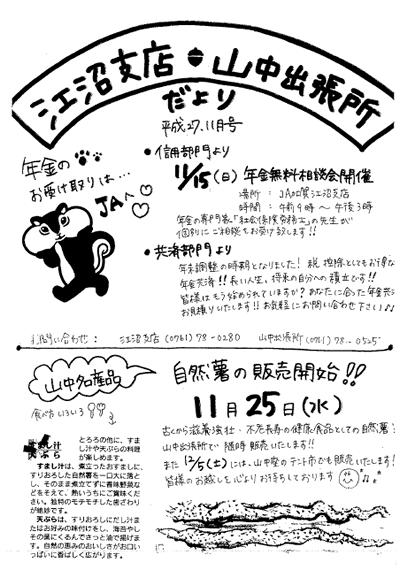 江沼支店・山中出張所
だより
平成27.11月号
年金の
お受け取りは…
JAへ
・信用部門より
11/15(日) 年金無料相談会開催
場所 : JA加賀江沼支店
時間 : 午前9時 〜 午後3時
年金の専門家「社会保険労務士」の先生が
個別にご相談をお受け致します!!
・共済部門より
年末調整の時期となりました! 税控除としてもお得な
年金共済!! 長い人生、将来の自分への積立です!!
皆様はもう始められていますか? あなたに合った年金共済
お見積りいたします!! お気軽にお問い合わせ下さい♪♪
お問い合わせ : 江沼支店 (0761) 78-0280 山中出張所 (0761) 78-0525
山中名産品
食べ方いろいろ
自然薯の販売開始!!
11月25日(水)
古くから滋養強壮・不老長寿の健康食品としての自然薯を
山中出張所で随時販売いたします!!
また 12/5(土)には、山中座のテント市でも販売いたします!
皆様のお越しを心よりお待ちしております
すまし汁
天ぷら
とろろの他に、すまし汁や天ぷらの料理が楽しめます。
すまし汁は、煮立ったおすましに、
すりおろした自然薯を一口大に落と
し、そのまま煮立てずに香味野菜な
どをそえて、熱いうちにご賞味くだ
さい。独特のモチモチした歯ざわり
が絶妙です。
天ぷらは、すりおろしにだし汁ま
たはお好みの味付けをし、海苔やし
その葉にくるんでさっと油で揚げま
す。自然の恵みのおいしさがお口い
っぱいに香ばしく広がります。